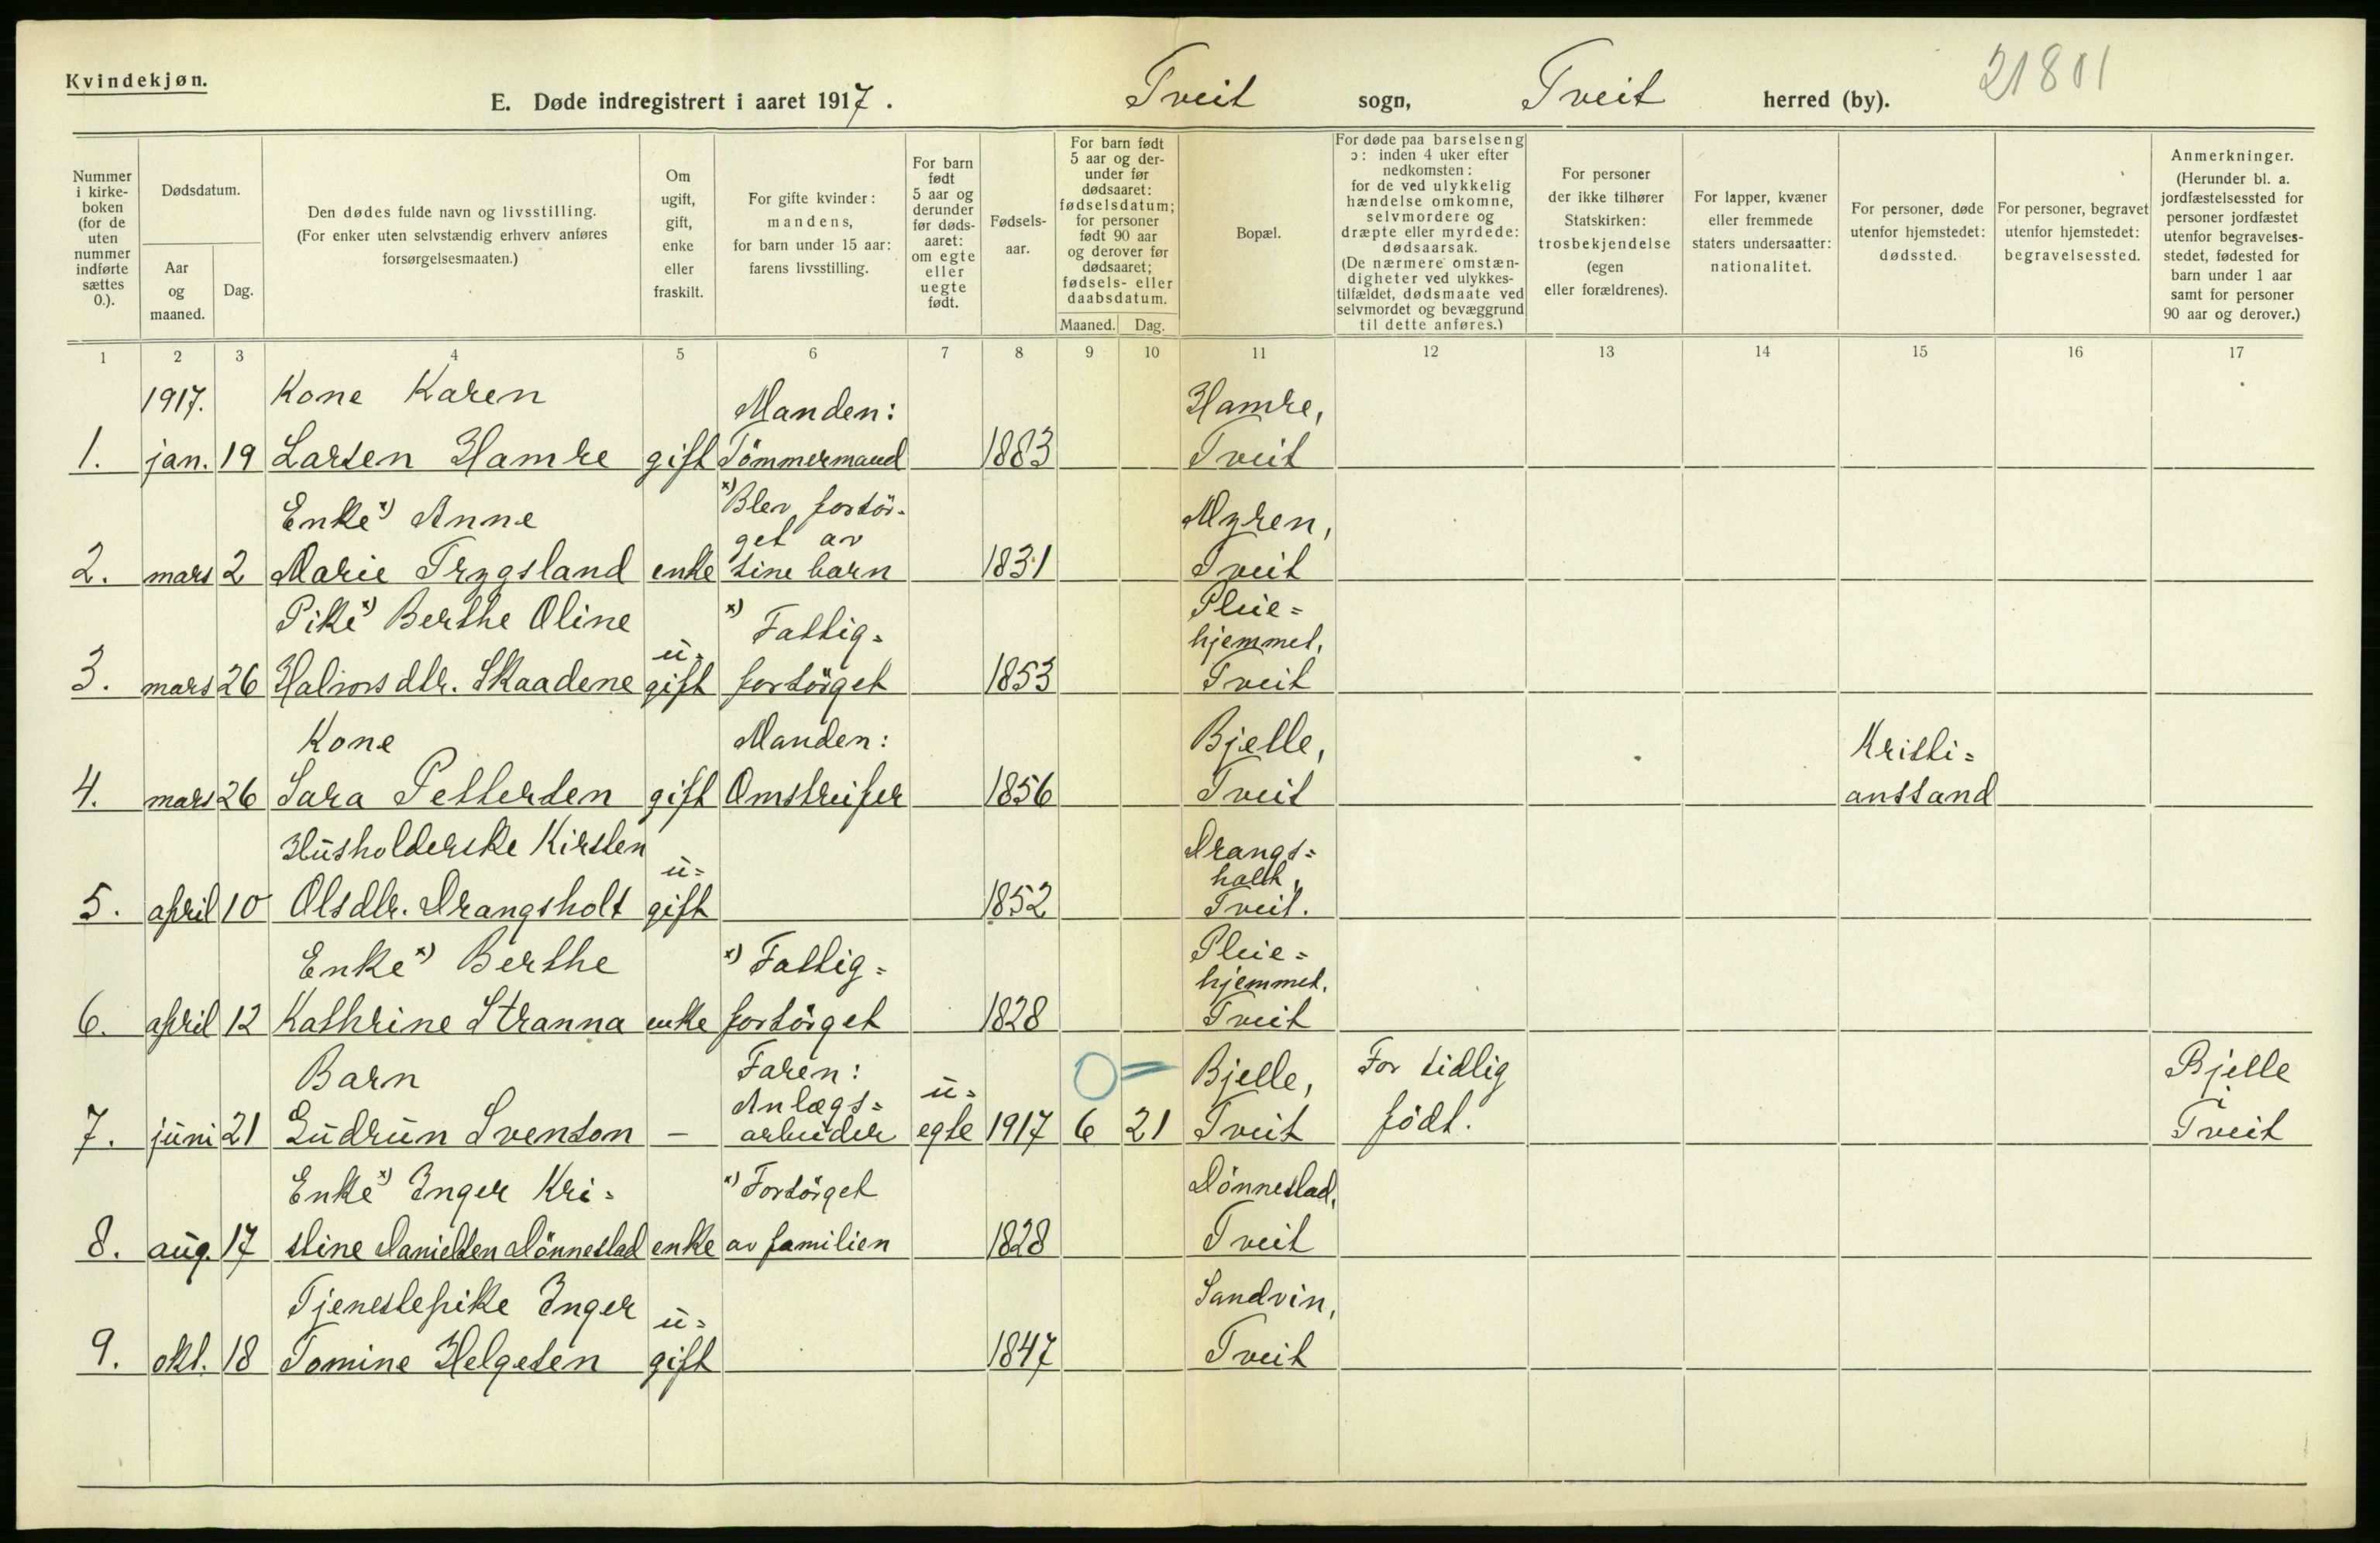 Kvindekjøn.
E. Døde indregistrert i aaret 1917. Tveit sogn, Tveit herred (by). 21801
Nummer i kirke-boken (for de uten nummer indførte sættes 0.).
Dødsdatum.
Aar og maaned.
Dag.
Den dødes fulde navn og livsstilling.
(For enker uten selvstændig erhverv anføres forsørgelsesmaaten.)
Om ugift, gift, enke eller fraskilt.
For gifte kvinder: mandens, for barn under 15 aar: farens livsstilling.
For barn født 5 aar og derunder før døds-aaret: om egte eller uegte født.
Fødsels-aar.
For barn født 5 aar og der-under før dødsaaret: fødselsdatum; for personer født 90 aar og derover før dødsaaret; fødsels- eller daabsdatum.
Maaned. Dag.
Bopæl.
For døde paa barselseng ɔ: inden 4 uker efter nedkomsten: for de ved ulykkelig hændelse omkomne, selvmordere og dræpte eller myrdede: dødsaarsak. (De nærmere omstæn-digheter ved ulykkes-tilfældet, dødsmaate ved selvmordet og bevæggrund til dette anføres.)
For personer der ikke tilhører Statskirken: trosbekjendelse (egen eller forældrenes).
For lapper, kvæner eller fremmede staters undersaatter: nationalitet.
For personer, døde utenfor hjemstedet: dødssted.
For personer, begravet utenfor hjemstedet: begravelsessted.
Anmerkninger. (Herunder bl. a. jordfæstelsessted for personer jordfæstet utenfor begravelses-stedet, fødested for barn under 1 aar samt for personer 90 aar og derover.)
1 2 3 4 5 6 7 8 9 10 11 12 13 14 15 16 17
1917. Kone Karen Manden: Hamre,
1. jan. 19 Larsen Hamre gift Tömmermand 1883 Tveit
Enke x) Anne x) Blev forsör-get av Myren,
2. mars 2 Marie Trygsland enke sine barn 1831 Tveit
Pike x) Berthe Oline ü- x) Fattig= Pleie=hjemmet,
3. mars 26 Halvorsdtr. Skaadene gift forsörget 1853 Tveit
Kone Manden: Bjelle, Kristi=
4. mars 26 Sara Pettersen gift Omstreifer 1856 Tveit anssand
Hüsholderske Kirsten ü= Drangs=holt,
5. april 10 Olsdtr. Drangsholt gift 1852 Tveit.
Enke x) Berthe x) Fattig= Pleie=hjemmet.
6. april 12 Kathrine Stranna enke forsörget 1828 Tveit
Barn Faren: Anlægs= ü= 0 = Bjelle, For tidlig Bjelle
7. jüni 21 Güdrün Svenson – arbeider egte 1917 6 21 Tveit födt. Tveit
Enke x) Inger Kri= x) Forsörget Dönnestad,
8. aüg. 17 stine Danielsen Dönnestad enke av familien 1828 Tveit
Tjenestepike Inger ü= Sandvin,
9. okt. 18 Tomine Helgesen gift 1847 Tveit